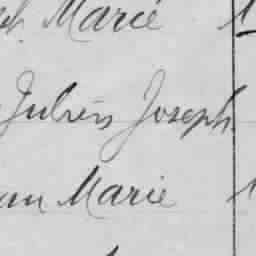 Marie
Julien Joseph
Marie